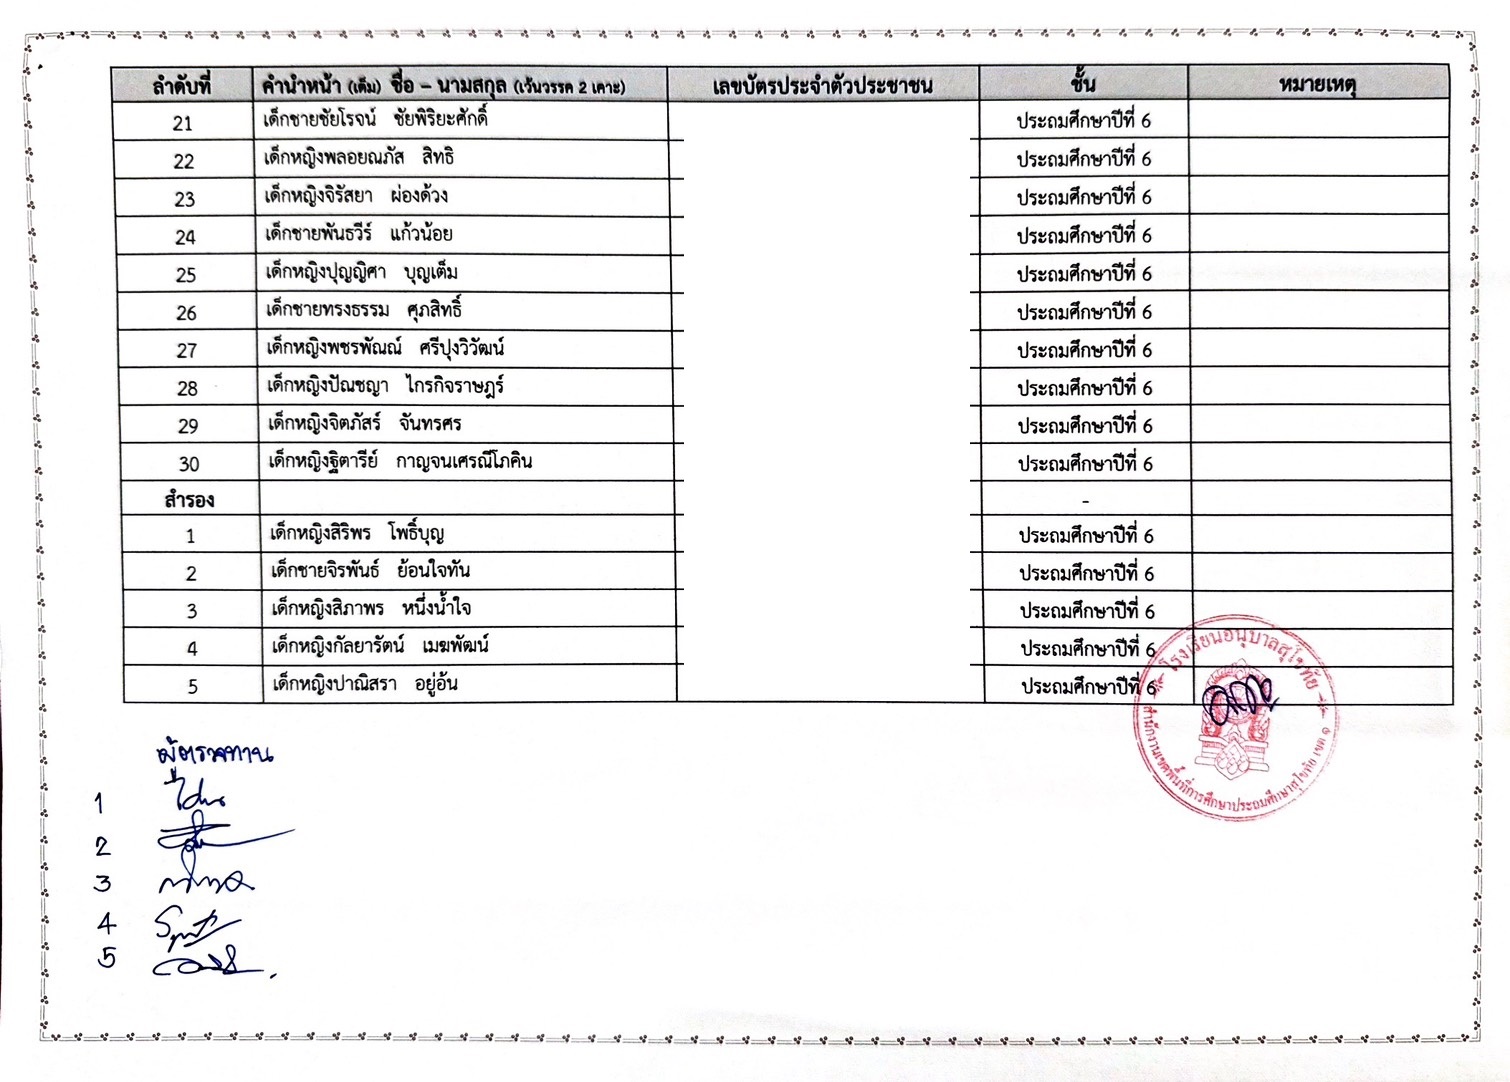 ลำดับที่ คำนำหน้า (เต็ม) ชื่อ – นามสกุล (เว้นวรรค 2 เคาะ) เลขบัตรประจำตัวประชาชน ชั้น หมายเหตุ
21 เด็กชายชัยโรจน์ ชัยพิริยะศักดิ์ ประถมศึกษาปีที่ 6
22 เด็กหญิงพลอยณภัส สิทธิ ประถมศึกษาปีที่ 6
23 เด็กหญิงจิรัสยา ผ่องด้วง ประถมศึกษาปีที่ 6
24 เด็กชายพันธวีร์ แก้วน้อย ประถมศึกษาปีที่ 6
25 เด็กหญิงปุญญิศา บุญเต็ม ประถมศึกษาปีที่ 6
26 เด็กชายทรงธรรม ศุภสิทธิ์ ประถมศึกษาปีที่ 6
27 เด็กหญิงพชรพัณณ์ ศรีปุงวิวัฒน์ ประถมศึกษาปีที่ 6
28 เด็กหญิงปัณชญา ไกรกิจราษฎร์ ประถมศึกษาปีที่ 6
29 เด็กหญิงจิตภัสร์ จันทรศร ประถมศึกษาปีที่ 6
30 เด็กหญิงฐิตารีย์ กาญจนเศรณีโภคิน ประถมศึกษาปีที่ 6
สำรอง -
1 เด็กหญิงสิริพร โพธิ์บุญ ประถมศึกษาปีที่ 6
2 เด็กชายจิรพันธ์ ย้อนใจทัน ประถมศึกษาปีที่ 6
3 เด็กหญิงสิภาพร หนึ่งน้ำใจ ประถมศึกษาปีที่ 6
4 เด็กหญิงกัลยารัตน์ เมฆพัฒน์ ประถมศึกษาปีที่ 6
5 เด็กหญิงปาณิสรา อยู่อ้น ประถมศึกษาปีที่ 6
โรงเรียนอนุบาลสุโขทัย
สำนักงานเขตพื้นที่การศึกษาประถมศึกษาสุโขทัย เขต ๑
ผู้ตรวจทาน
1
2
3
4
5